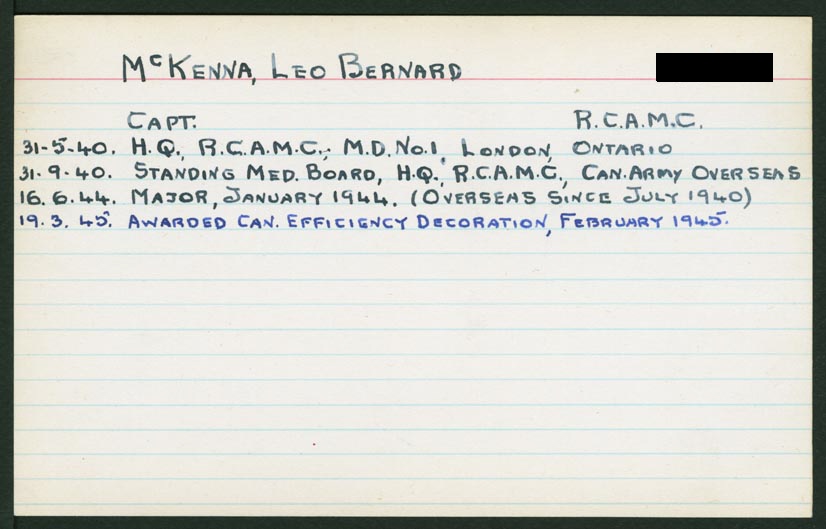 McKENNA, LEO BERNARD
CAPT. R.C.A.M.C.
31-5-40. H.Q., R.C.A.M.C., M.D. No.1, LONDON, ONTARIO
31-9-40. STANDING MED. BOARD, H.Q., R.C.A.M.C., CAN. ARMY OVERSEAS
16.6.44. MAJOR, JANUARY 1944. (OVERSEAS SINCE JULY 1940)
19.3.45. AWARDED CAN. EFFICIENCY DECORATION, FEBRUARY 1945.